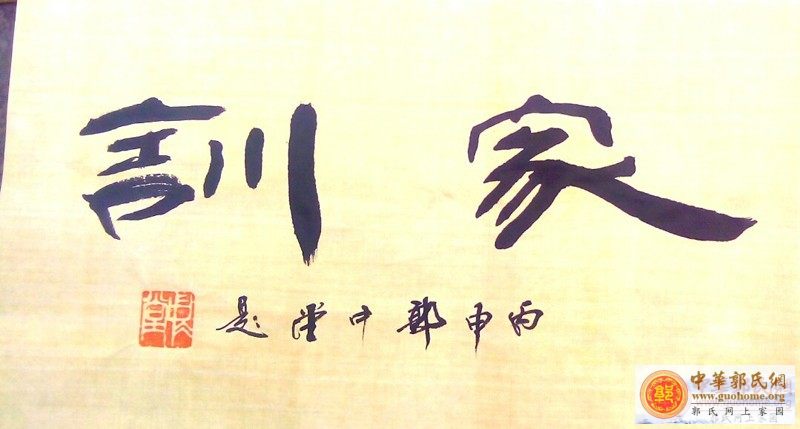 家訓
丙申郭中題
郭
中華郭氏網
www.guohome.org
郭氏网上家园